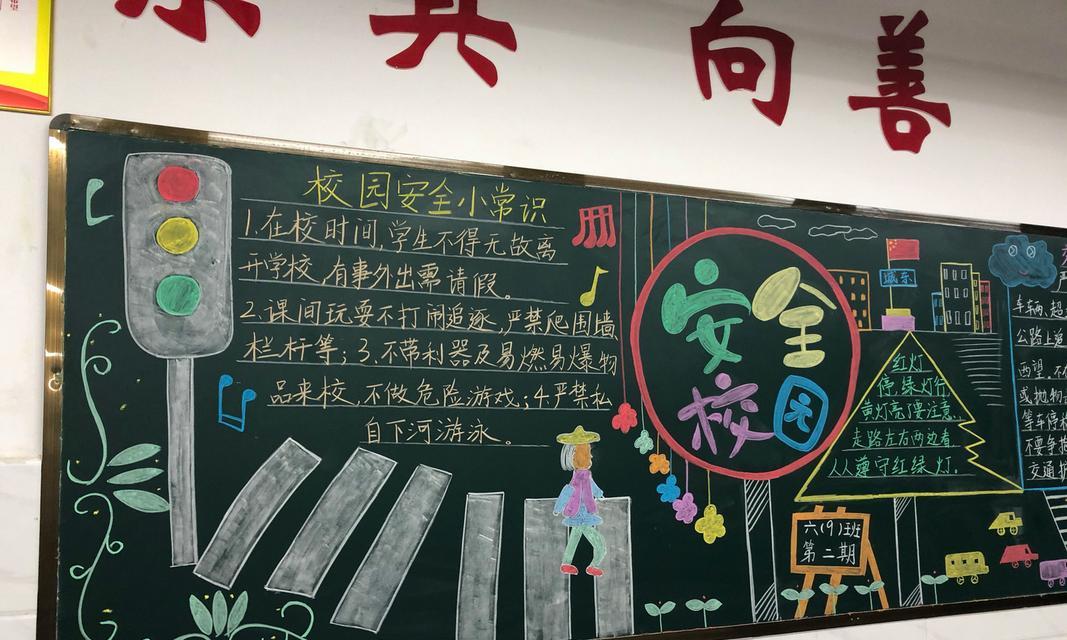 向善
校园安全小常识
1.在校时间,学生不得无故离
开学校,有事外出需请假。
2.课间玩耍不打闹追逐,严禁爬围墙
栏杆等;3.不带利器及易燃易爆物
品来校,不做危险游戏;4.严禁私
自下河游泳。
安全
校园
城东
红灯
停,绿灯行
黄灯亮了要注意,
走路左右两边看
人人遵守红绿灯.
六(9)班
第二期
车辆,超
公路上追
西望,不
或抛物
等车停
不要争抢
交通